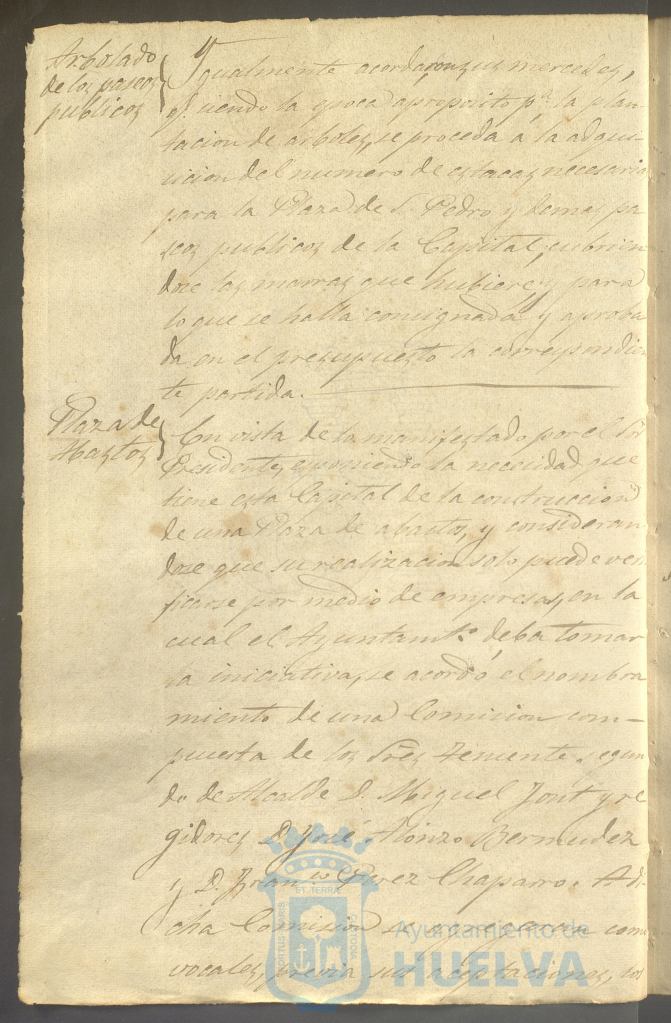 Arbolado
de los paseos
publicos
Ygualmente acordaron sus mercedes,
qe. siendo la epoca aproposito pa. la plan-
tacion de arboles, se proceda á la adqui-
sicion del numero de estacas necesaria
para la Plaza de S. Pedro y demas pa
seos publicos de la Capital, cubrien
dose las marras que hubiere, y para
lo que se halla consignada y aproba
da en el presupuesto la correspondien
te partida.
Plaza de
Abastos
Con vista de lo manifestado por el Sr
Presidente, esponiendo la necesidad que
tiene esta Capital de la construccion
de una Plaza de abastos, y consideran
dose que su realizacion solo puede veri
ficarse por medio de empresas, en la
cual el Ayuntamto. deba tomar
la iniciativa, se acordó el nombra
miento de una Comision com-
puesta de los Sres Teniente segun
do de Alcalde D. Miguel Jont y re
gidores D. José Alonzo Bermudez
y D. Franco. Perez Chaparro. A di
cha Comision se agregaran como
vocales, previa sus aceptaciones, los
PORTUS MARIS
ET TERRÆ
CUSTODIA
Ayuntamiento de
HUELVA